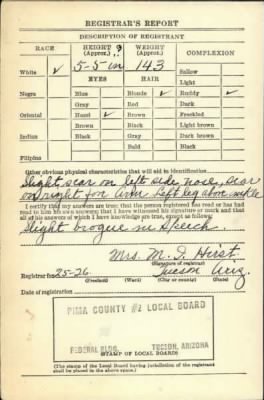 REGISTRAR'S REPORT
DESCRIPTION OF REGISTRANT
RACE HEIGHT (Approx.) ? WEIGHT (Approx.) COMPLEXION
White ✓ 5-5 in 143 Sallow
EYES HAIR Light
Negro Blue Blonde ✓ Ruddy ✓
Gray Red Dark
Oriental Hazel ✓ Brown Freckled
Brown Black Light brown
Indian Black Gray Dark brown
Bald Black
Filipino
Other obvious physical characteristics that will aid in identification
Slight scar on left side nose, scar
on right for Arm. Left leg above ankle
I certify that my answers are true; that the person registered has read or has had
read to him his own answers; that I have witnessed his signature or mark and that
all of his answers of which I have knowledge are true, except as follows:
Slight brogue in Speech.
Mrs. M. I. Hirst.
(Signature of registrar)
Registrar for 25-26 Tucson Ariz.
(Precinct) (Ward) (City or county) (State)
Date of registration
PIMA COUNTY #2 LOCAL BOARD
FEDERAL BLDG. TUCSON, ARIZONA
(STAMP OF LOCAL BOARD)
(The stamp of the Local Board having jurisdiction of the registrant
shall be placed in the above space.)